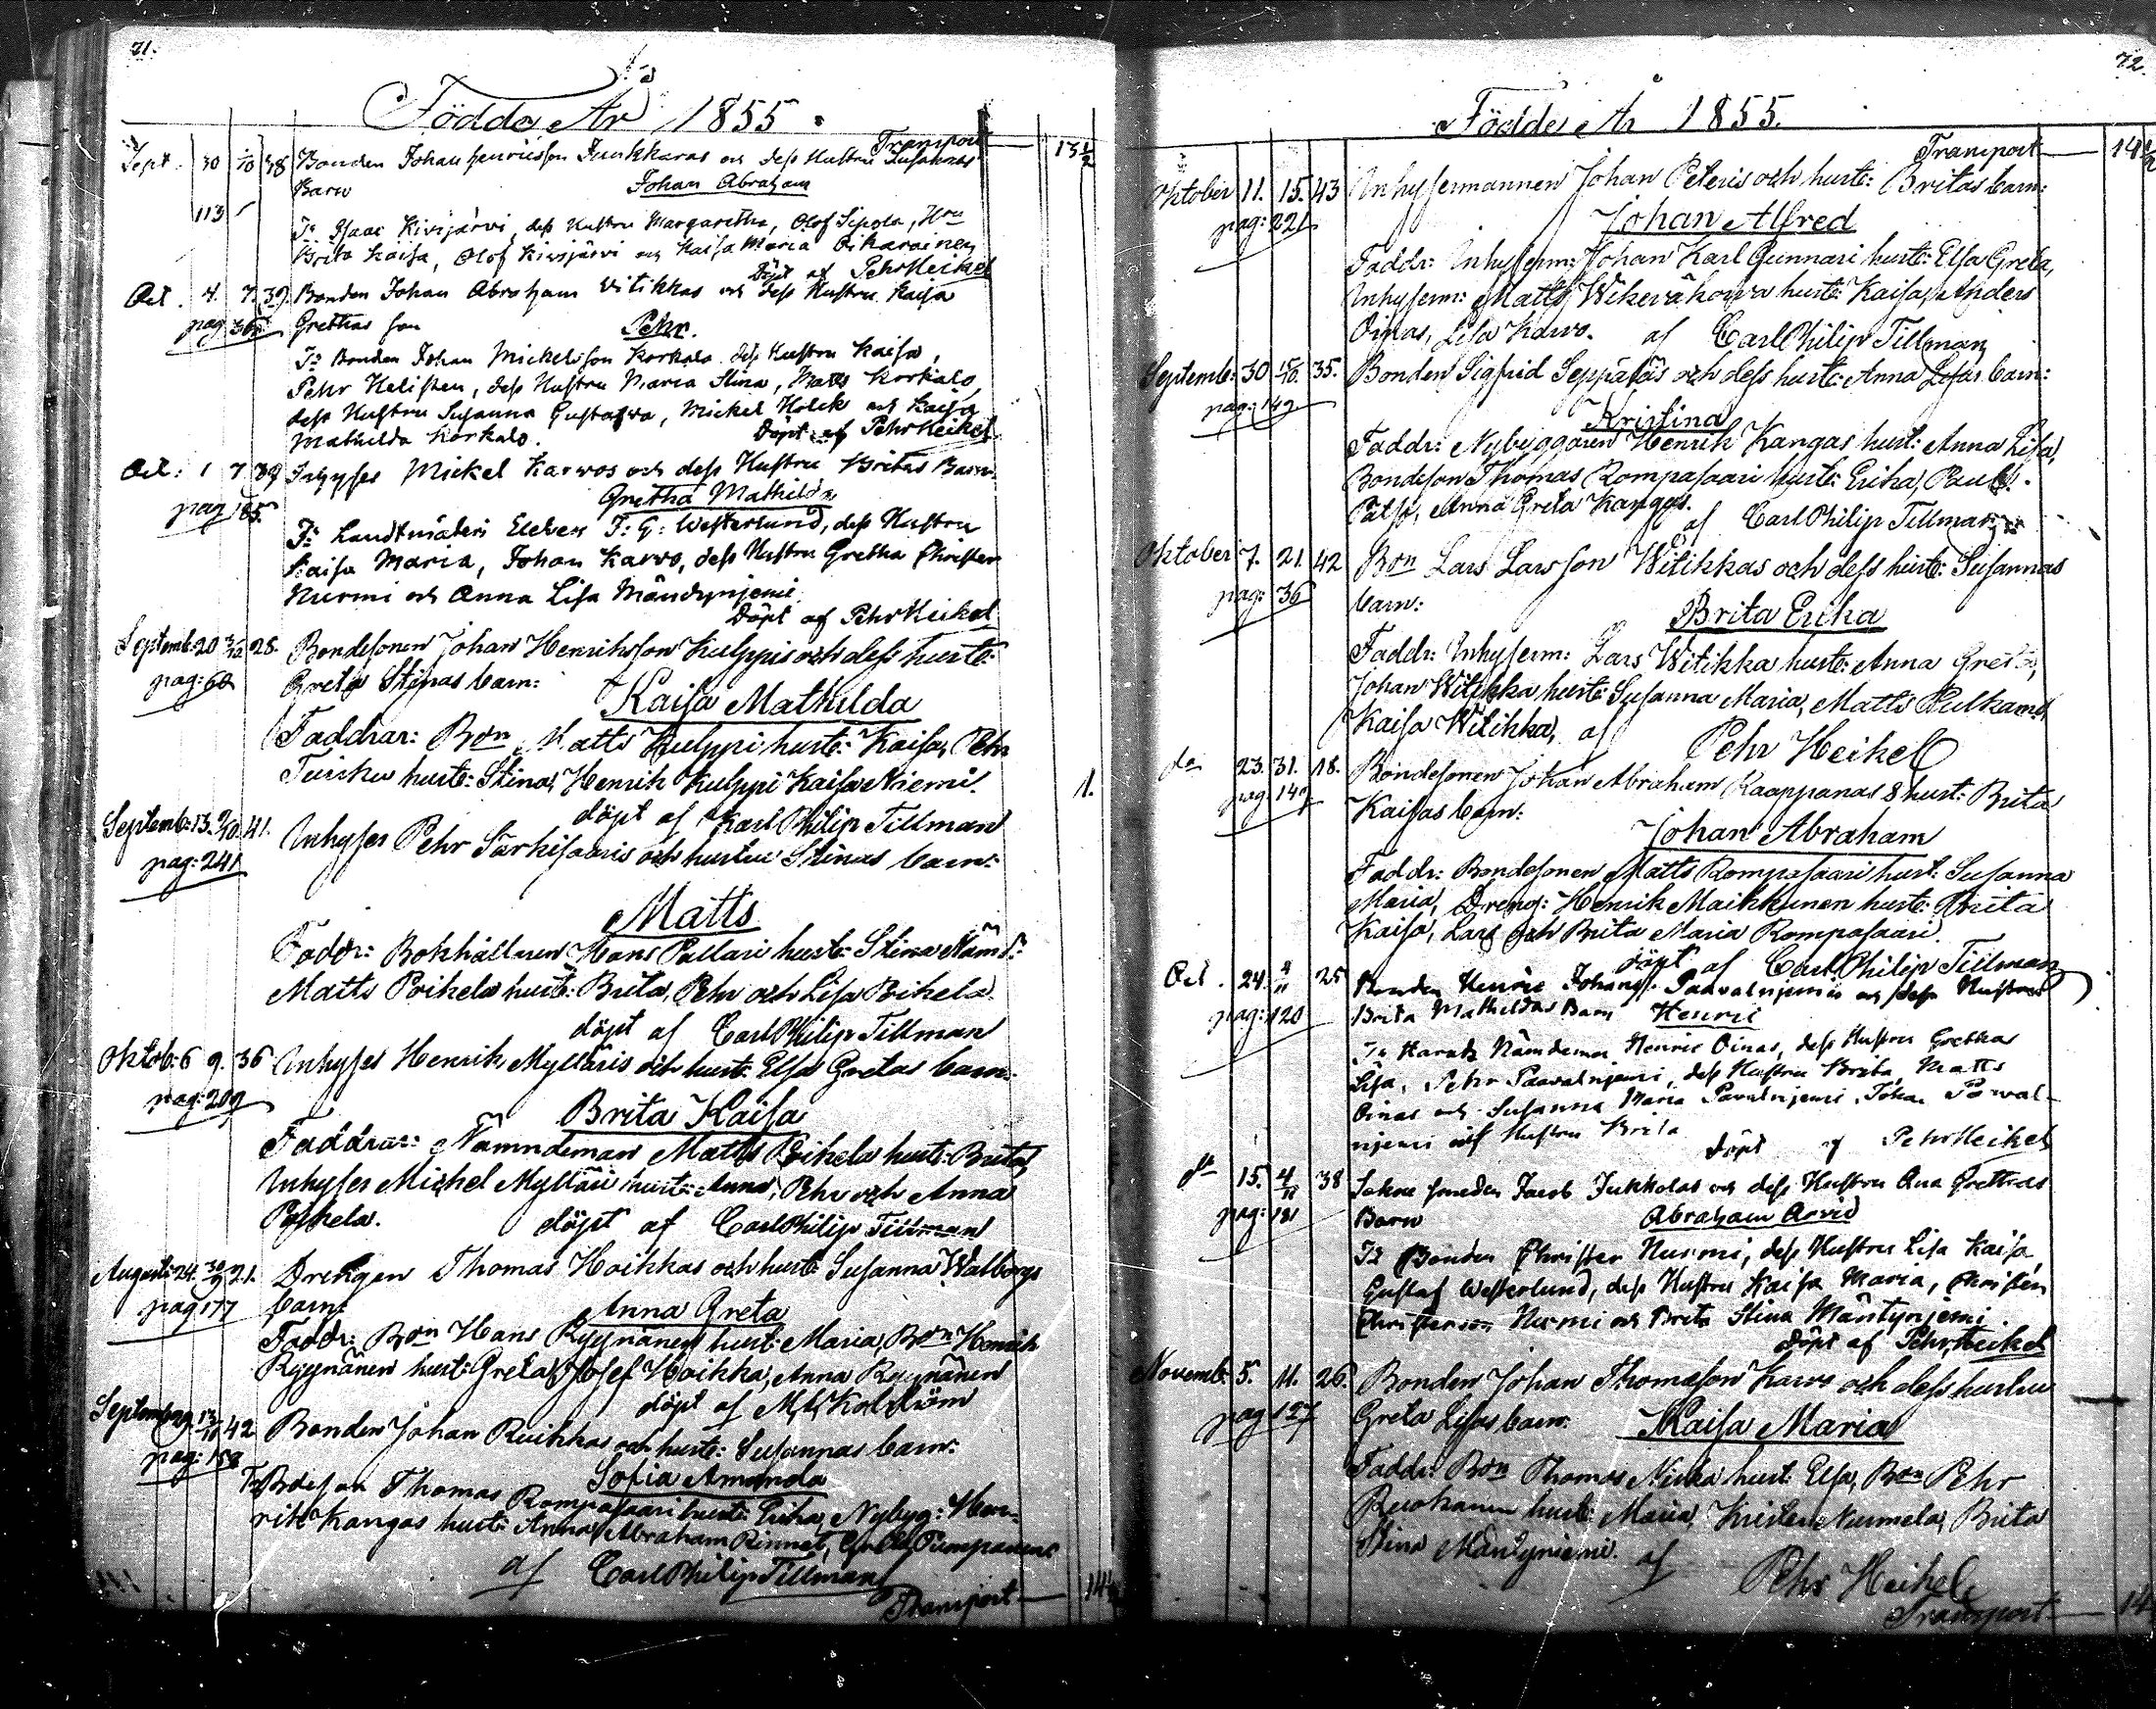 71.
Födde År 1855.
Transport 13 1/2
Sept. 30 7/10 38 Bonden Johan Henricsson Junkkaras och dess Hustru Susannas
Barn Johan Abraham
113
Fr Isaac Kivijärvi, dess Hustru Margaretha, Olof Sipola, Hru
Brita Kaisa, Olof Kivijärvi och Kaisa Maria Oikarainen
Döpt af Pehr Heikel
Oct. 4. 7. 39 Bonden Johan Abraham Vitikkas och dess Hustru Kaisa
pag 36 Grethas son Pehr.
Fr Bonden Johan Mickelsson Korkalo dess Hustru Kaisa,
Pehr Helisten, dess Hustru Maria Stina, Matts Korkalo,
dess Hustru Susanna Gustafva, Mickel Holck och Kaisa
Mathilda Korkalo. Döpt af Pehr Heikel
Oct: 1 7 39 Inhyses Mickel Karvos och dess Hustru Britas Barn
Gretha Mathilda
pag 185.
Fr Landtmäteri Eleven J: G: Westerlund, dess Hustru
Kaisa Maria, Johan Karvo, dess Hustru Gretha Christer
Nurmi och Anna Lisa Mändynjemi.
Döpt af Pehr Heikel
Septemb: 20 28. Bondesonen Johan Henriksson Kulppis och dess hustr:
pag: 60 Greta Stinas barn:
Kaisa Mathilda
Faddrar: Bon Matts Kulppi hustr: Kaisa, Pehr
Tuisku hustr: Stina, Henrik Kulppi Kaisa Niemi.
döpt af Karl Philip Tillman
1.
Septemb: 13. 41. Inhyses Pehr Särkisaaris och hustru Stinas barn:
pag: 241
Matts
Faddr: Bokhållaren Hans Pallari hustr: Stina Nämd:
Matts Poikela hustr: Brita, Pehr och Lisa Poikela.
döpt af Carl Philip Tillman
Oktob: 6 9. 36 Inhyses Henrik Mylläris och hustr: Elsa Gretas barn:
pag: 209
Brita Kaisa
Faddrar: Nämndeman Matts Poikela hustr: Brita,
Inhyses Michel Mylläri hustr: Anna, Pehr och Anna
Poikela. döpt af Carl Philip Tillman
Augusti 24. 30/9 21. Drengen Thomas Hoikkas och hustr: Susanna Walborgs
pag 177 barn:
Anna Greta
Faddr: Bon Hans Ryynänen hustr: Maria, Bon Henrik
Ryynänen hustr: Greta, Josef Hoikka, Anna Ryynänen
döpt af
Septemb 42 Bonden Johan Ruikkas och hustr: Susannas barn:
pag: 158
Sofia Amanda
Fr Bdeson Thomas Rompasaari hustr: Erika, Nybyg: Hen-
rik Kangas hustr: Anna, Abraham Rinnet, Greta Pumpanens
af Carl Philip Tillman
Transport 14 1/2
72.
Födde År 1855.
Transport 14 1/2
Oktober 11. 15. 43 Inhysesmannen Johan Peteris och hustr: Britas barn:
pag: 221
Johan Alfred
Faddr: Inhysesm: Johan Karl Gunnari hustr: Elsa Greta,
Inhysesm: Matts hustr: Kaisa, Anders
Oinas, Lisa Karvo. af Carl Philip Tillman
Septemb: 30 15/10. 35. Bonden Sigfrid Seppäläs och dess hustr: Anna Lisas barn:
pag: 149
Kristina
Faddr: Nybyggaren Henrik Kangas hustr: Anna Lisa,
Bondeson Thomas Rompasaari hustr: Erika, Paul
Palsi, Anna Greta Kangas.
af Carl Philip Tillman
Oktober 7. 21. 42 Bon Lars Larsson Witikkas och dess hustr: Susannas
pag: 36 barn:
Brita Erika
Faddr: Inhysesm: Lars Witikka hustr: Anna Greta,
Johan Witikka hustr: Susanna Maria, Matts Pulkamo,
Kaisa Witikka, af Pehr Heikel
do 23. 31. 18. Bondesonen Johan Abraham Kaappanas & hust: Brita
pag: 147 Kaisas barn:
Johan Abraham
Faddr: Bondesonen Matts Rompasaari hust: Susanna
Maria, Dreng: Henrik Maikkunen hustr: Brita
Kaisa, Lars och Brita Maria Rompasaari.
döpt af Carl Philip Tillman
Oct. 24. 4/11 25 Bonden Henric Johans. Paavalnjemis och dess Hustru
pag: 120 Brita Mathildas Barn Henric
Fr Härads Nämdeman Henric Oinas, dess Hustru Gretha
Lisa, Pehr Paavalnjemi, dess Hustru Brita, Matts
Oinas och Susanna Maria Pavalnjemi, Johan Pawal-
njemi och Hustru Brita
Döpt af Pehr Heikel
do 15. 4/11 38 Sokne smeden Jacob Jukkolas och dess Hustru Ana Grethas
pag: 181 Barn Abraham Arvid
Fr Bonden Christer Nurmi, dess Hustru Lisa Kaisa,
Gustaf Westerlund, dess Hustru Kaisa Maria, Christer
Christersson Nurmi och Brita Stina Mäntynjemi.
Döpt af Pehr Heikel
Novemb: 5. 11. 26. Bonden Johan Thomasson Karvo och dess hustru
pag 127 Greta Lisas barn: Kaisa Maria
Faddr: Bon Thomas Niska hust: Elsa, Bon Pehr
Ruokanen hustr: Maria, Krister Nurmela, Brita
Stina Mäntyniemi. af Pehr Heikel
Transport 14